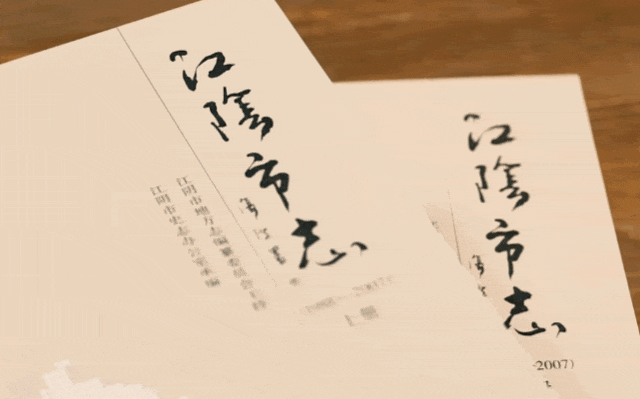 江陰市志
江阴市地方志编纂委员会主持
江阴市史志办公室承编
上册
江陰市志
-2007)